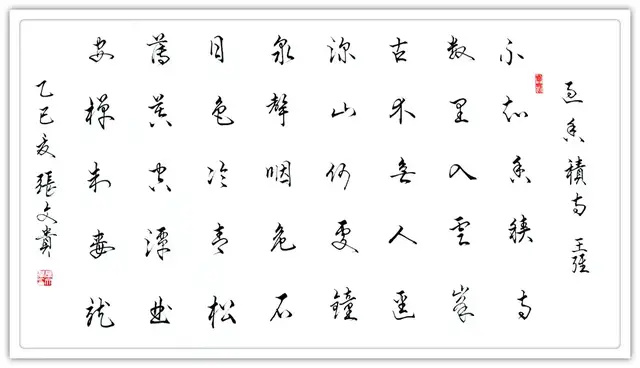 過香積寺 王維
不知香積寺
數里入雲峯
古木無人逕
深山何處鐘
泉聲咽危石
日色冷青松
薄暮空潭曲
安禪制毒龍
乙巳夏 張文貴